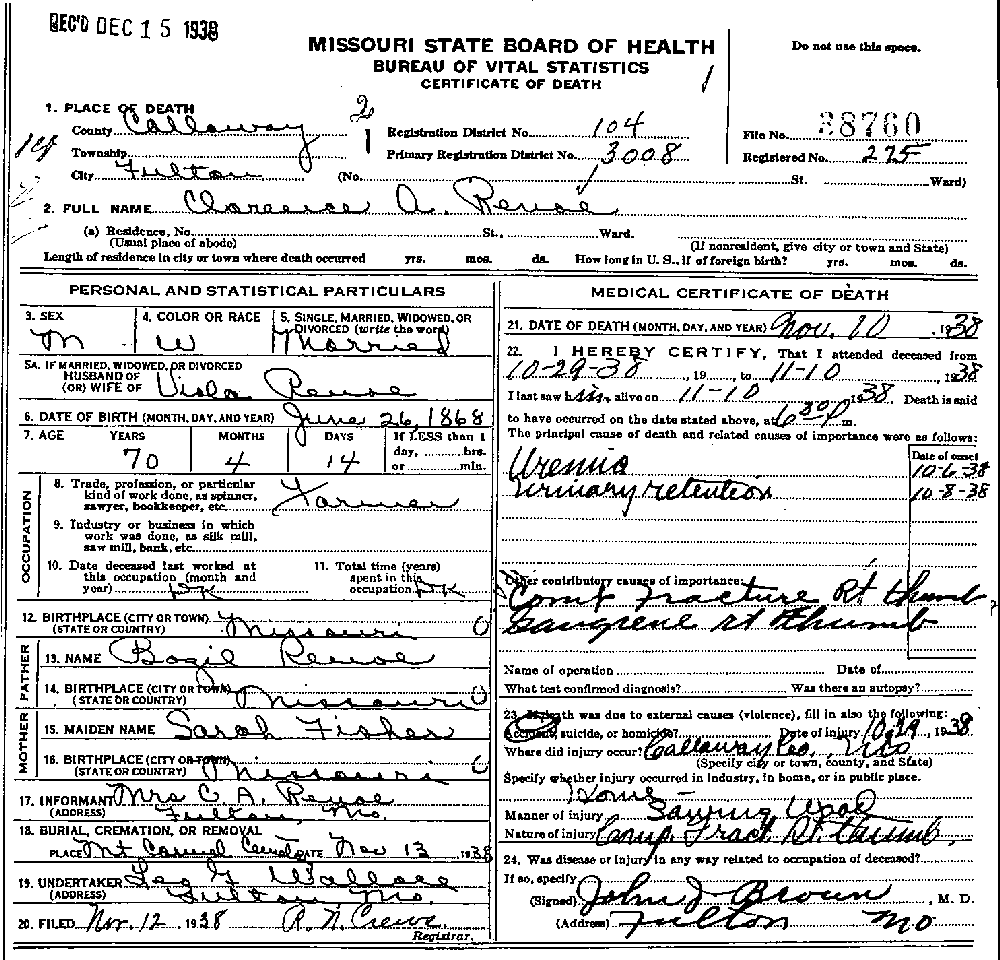 REC'D DEC 15 1938
MISSOURI STATE BOARD OF HEALTH
BUREAU OF VITAL STATISTICS
CERTIFICATE OF DEATH
Do not use this space.
1. PLACE OF DEATH
County Callaway
Township
City Fulton (No. St. Ward)
Registration District No. 104
Primary Registration District No. 3008
File No. 38760
Registered No. 275
2. FULL NAME Clarence A. Renoe
(a) Residence, No. St., Ward.
(Usual place of abode) (If nonresident, give city or town and State)
Length of residence in city or town where death occurred yrs. mos. ds. How long in U. S., if of foreign birth? yrs. mos. ds.
PERSONAL AND STATISTICAL PARTICULARS
3. SEX M
4. COLOR OR RACE W
5. SINGLE, MARRIED, WIDOWED, OR DIVORCED (write the word) Married
5A. IF MARRIED, WIDOWED, OR DIVORCED
HUSBAND OF
(OR) WIFE OF Viola Renoe
6. DATE OF BIRTH (MONTH, DAY, AND YEAR) June 26, 1868
7. AGE YEARS MONTHS DAYS If LESS than 1
day, hrs.
or min.
70 4 14
OCCUPATION
8. Trade, profession, or particular
kind of work done, as spinner,
sawyer, bookkeeper, etc. Farmer
9. Industry or business in which
work was done, as silk mill,
saw mill, bank, etc.
10. Date deceased last worked at
this occupation (month and
year) DK
11. Total time (years)
spent in this
occupation DK
12. BIRTHPLACE (CITY OR TOWN)
(STATE OR COUNTRY) Missouri 0
FATHER
13. NAME Bazil Renoe
14. BIRTHPLACE (CITY OR TOWN)
(STATE OR COUNTRY) Missouri 0
MOTHER
15. MAIDEN NAME Sarah Fisher
16. BIRTHPLACE (CITY OR TOWN)
(STATE OR COUNTRY) Missouri 0
17. INFORMANT Mrs C. A. Renoe
(ADDRESS) Fulton, Mo.
18. BURIAL, CREMATION, OR REMOVAL
PLACE Mt Carmel DATE Nov 13 1938
19. UNDERTAKER Wallace
(ADDRESS) Fulton, Mo.
20. FILED Nov. 12 1938 R. N. Crews
Registrar.
MEDICAL CERTIFICATE OF DEATH
21. DATE OF DEATH (MONTH, DAY, AND YEAR) Nov. 10, 1938
22. I HEREBY CERTIFY, That I attended deceased from
10-29-38, 19 , to 11-10, 1938
I last saw him alive on 11-10 1938. Death is said
to have occurred on the date stated above, at 6:30 P m.
The principal cause of death and related causes of importance were as follows:
Date of onset
Uremia 10-6-38
Urinary retention 10-8-38
Other contributory causes of importance:
Comp Fracture Rt thumb
Gangrene rt thumb
Name of operation Date of
What test confirmed diagnosis? Was there an autopsy?
23. If death was due to external causes (violence), fill in also the following:
Accident, suicide, or homicide? Date of injury 10-29, 1938
Where did injury occur? Callaway Co., Mo
(Specify city or town, county, and State)
Specify whether injury occurred in industry, in home, or in public place.
Home
Manner of injury Sawing Wood
Nature of injury Comp Fract Rt. thumb.
24. Was disease or injury in any way related to occupation of deceased?
If so, specify
(Signed) John J Brown, M. D.
(Address) Fulton Mo